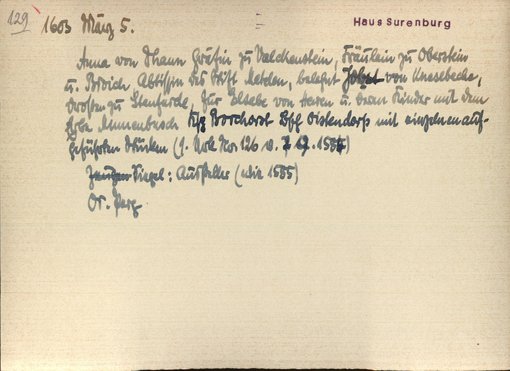 129
1603 März 5.
Haus Surenburg
Anna von Thaun Gräfin zu Valckenstein, Fräulein zu Oberstein
u. Broich Abtissin des Stift Metelen, belehnt von Knesebecke,
Drosten zu Stenforde, für Elsabe von Heren u. deren Kinder mit dem
Erbe Kspl. Borchorst Bff Oistendorf mit einzelnen auf-
geführten Stücken (s. Urk No 126 v. 1585)
Siegel: Aussteller (wie 1585)
Or. Perg.